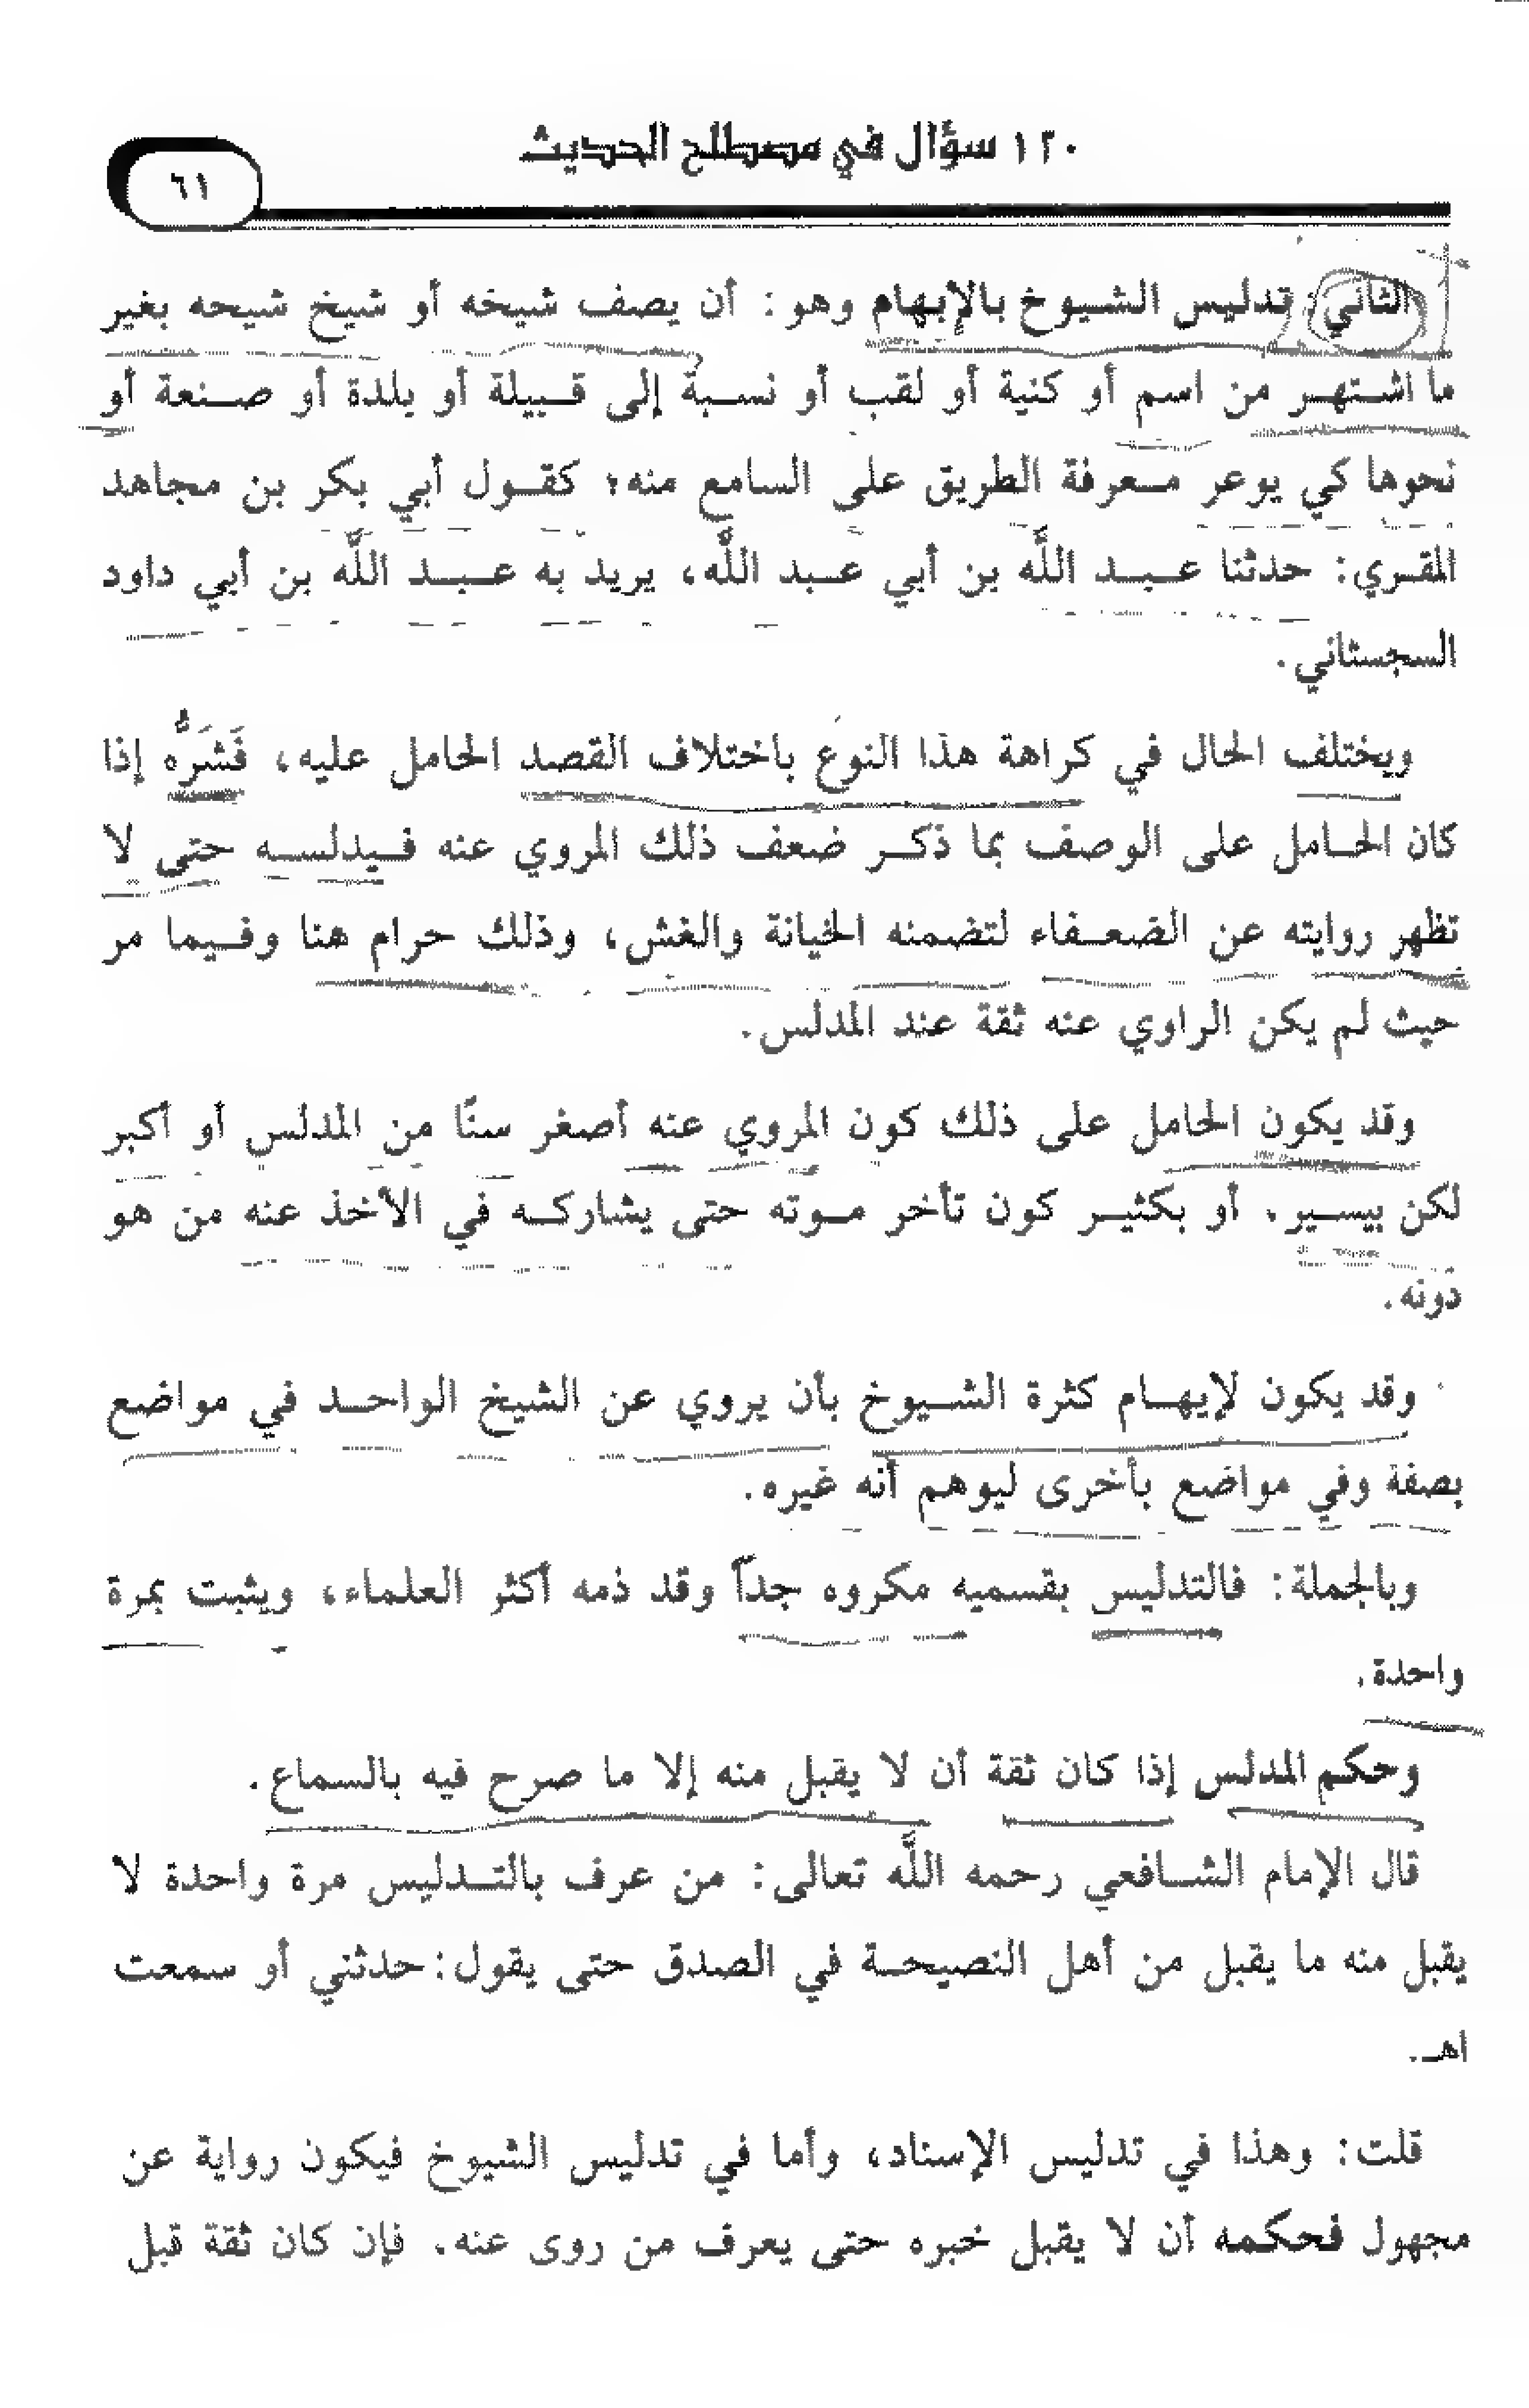 ١٢٠ سؤال في مصطلح الحديث
٦١
الثاني: تدليس الشيوخ بالإبهام وهو: أن يصف شيخه أو شيخ شيخه بغير
ما اشتهر من اسم أو كنية أو لقب أو نسبة إلى قبيلة أو بلدة أو صنعة أو
نحوها كي يوعر معرفة الطريق على السامع منه؛ كقول أبي بكر بن مجاهد
المقري: حدثنا عبد اللَّه بن أبي عبد اللَّه، يريد به عبد اللَّه بن أبي داود
السجستاني.
ويختلف الحال في كراهة هذا النوع باختلاف القصد الحامل عليه، فَشَرُّه إذا
كان الحامل على الوصف بما ذكر ضعف ذلك المروي عنه فيدلسه حتى لا
تظهر روايته عن الضعفاء لتضمنه الخيانة والغش، وذلك حرام هنا وفيما مر
حيث لم يكن الراوي عنه ثقة عند المدلس.
وقد يكون الحامل على ذلك كون المروي عنه أصغر سنًا من المدلس أو أكبر
لكن بيسير. أو بكثير كون تأخر موته حتى يشاركه في الأخذ عنه من هو
دونه.
وقد يكون لإيهام كثرة الشيوخ بأن يروي عن الشيخ الواحد في مواضع
بصفة وفي مواضع بأخرى ليوهم أنه غيره.
وبالجملة: فالتدليس بقسميه مكروه جداً وقد ذمه أكثر العلماء، ويثبت بمرة
واحدة.
وحكم المدلس إذا كان ثقة أن لا يقبل منه إلا ما صرح فيه بالسماع.
قال الإمام الشافعي رحمه اللَّه تعالى: من عرف بالتدليس مرة واحدة لا
يقبل منه ما يقبل من أهل النصيحة في الصدق حتى يقول: حدثني أو سمعت
اهـ.
قلت: وهذا في تدليس الإسناد، وأما في تدليس الشيوخ فيكون رواية عن
مجهول فحكمه أن لا يقبل خبره حتى يعرف من روى عنه. فإن كان ثقة قبل